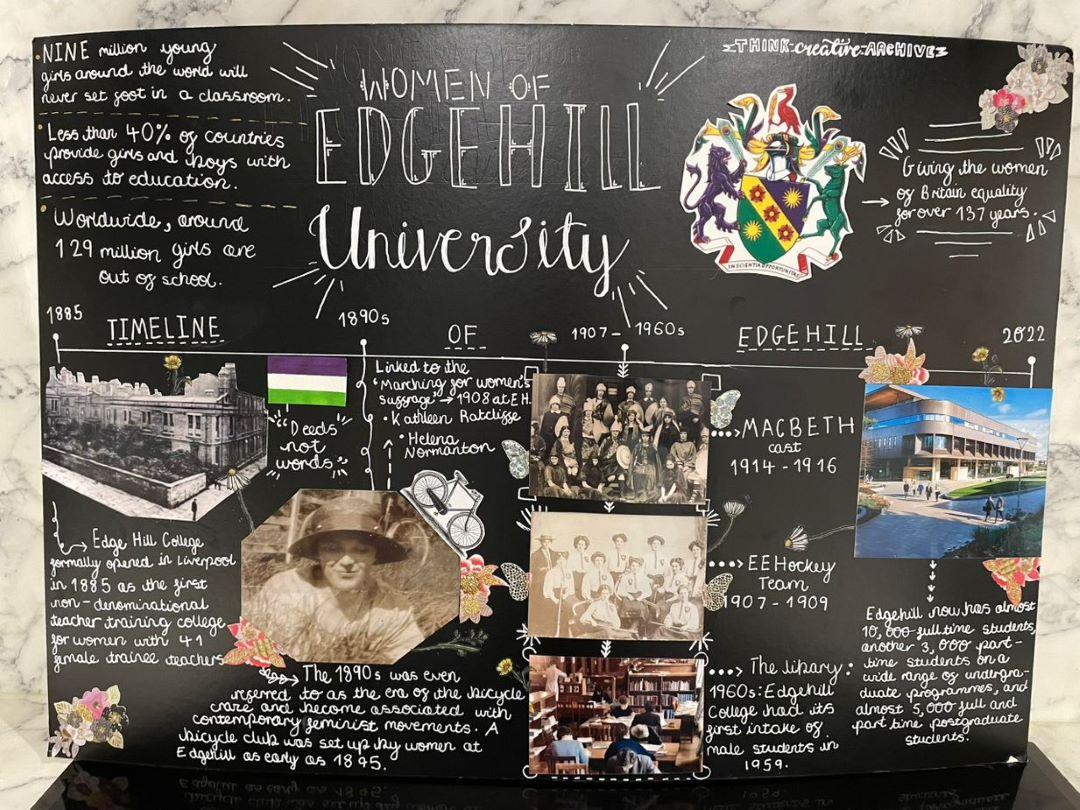 THINK creative ARCHIVE
• NINE million young
girls around the world will
never set foot in a classroom.
• Less than 40% of countries
provide girls and boys with
access to education.
• Worldwide, around
129 million girls are
out of school.
WOMEN OF
EDGEHILL
University
IN SCIENTIA OPPORTUNITAS
Giving the women
of Britain equality
for over 137 years.
TIMELINE OF EDGEHILL
1885
1890s
1907- 1960s
2022
Edge Hill College
formally opened in Liverpool
in 1885 as the first
non-denominational
teacher training college
for women with 41
female trainee teachers
"Deeds
not
words"
Linked to the
'Marching for women's
suffrage' → 1908 at E.H.
• Kathleen Ratcliffe
• Helena
Normanton
The 1890s was even
referred to as the era of the bicycle
craze and become associated with
contemporary feminist movements. A
bicycle club was set up by women at
Edgehill as early as 1895.
MACBETH
cast
1914-1916
EE Hockey
Team
1907-1909
The library:
1960s: Edgehill
College had its
first intake of
male students in
1959.
Edgehill now has almost
10,000 full time students,
another 3,000 part-
time students on a
wide range of undergra-
duate programmes, and
almost 5,000 full and
part time postgraduate
students.